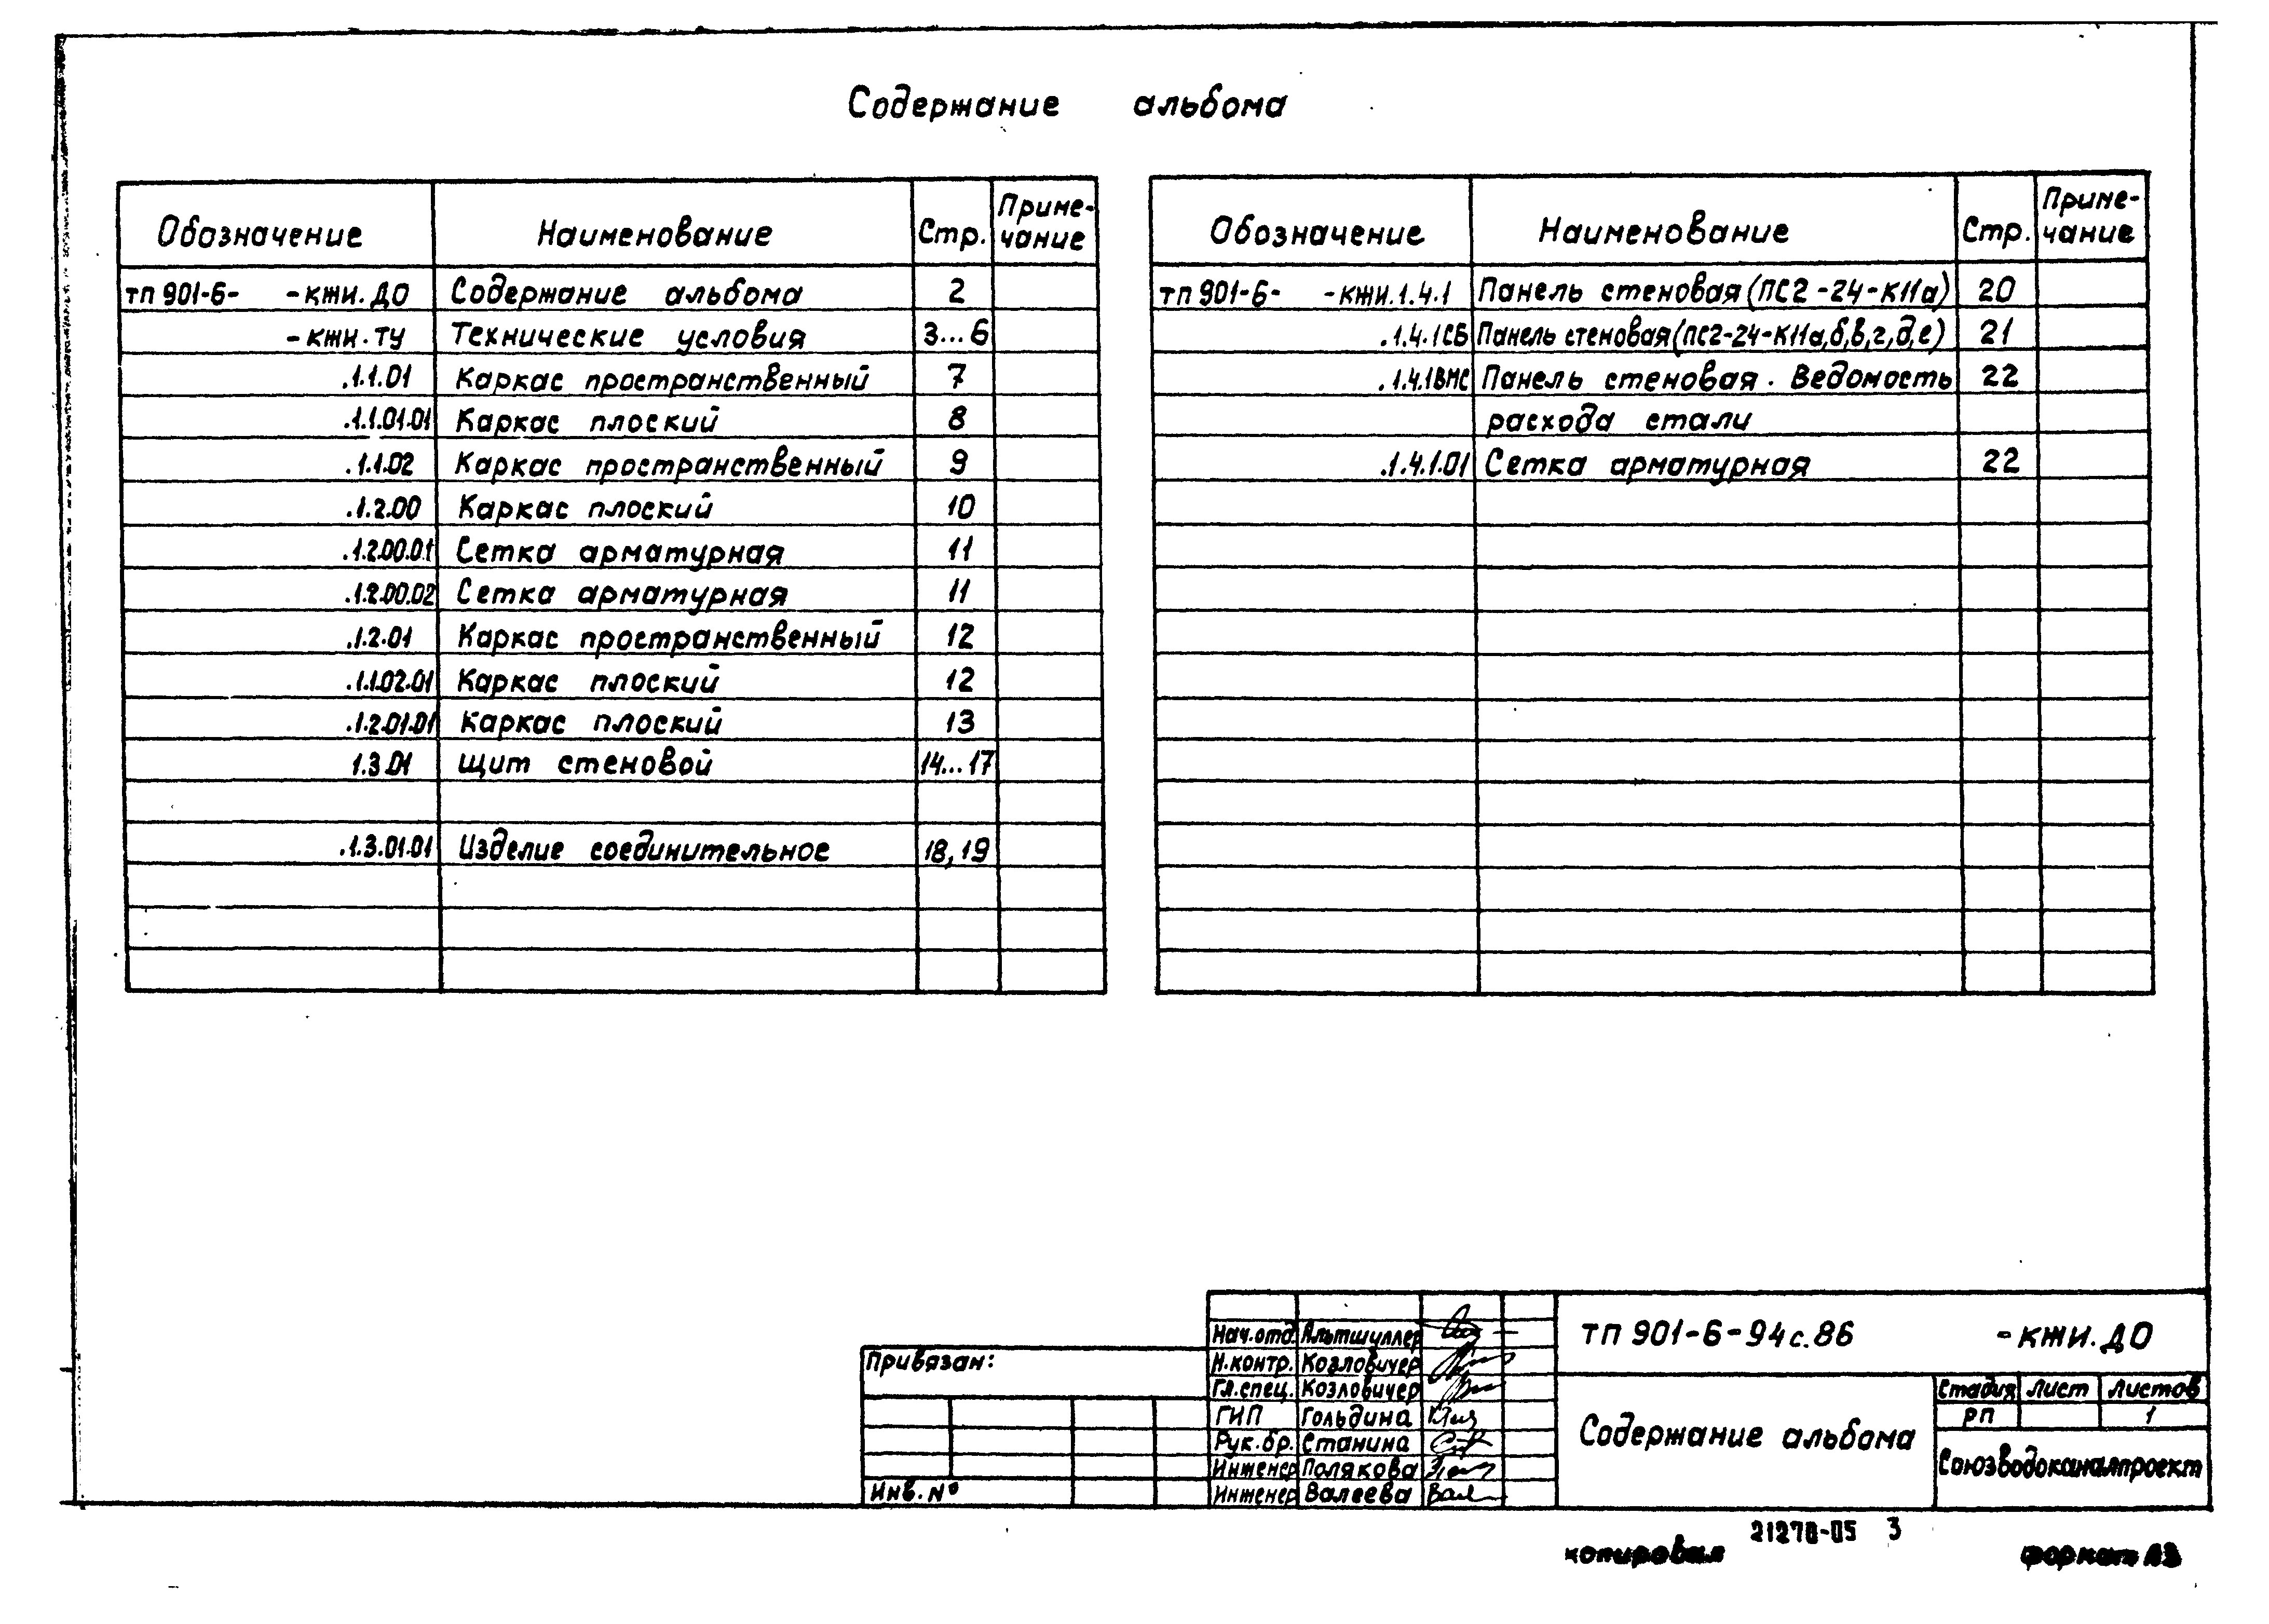 Содержание альбома
Обозначение Наименование Стр. Приме-
чание
тп 901-6- -кжи.ДО Содержание альбома 2
-кжи.ТУ Технические условия 3...6
.1.1.01 Каркас пространственный 7
.1.1.01.01 Каркас плоский 8
.1.1.02 Каркас пространственный 9
.1.2.00 Каркас плоский 10
.1.2.00.01 Сетка арматурная 11
.1.2.00.02 Сетка арматурная 11
.1.2.01 Каркас пространственный 12
.1.1.02.01 Каркас плоский 12
.1.2.01.01 Каркас плоский 13
1.3.01 щит стеновой 14...17
.1.3.01.01 Изделие соединительное 18,19
Обозначение Наименование Стр. Приме-
чание
тп 901-6- -кжи.1.4.1 Панель стеновая (ПС2-24-К11а) 20
.1.4.1СБ Панель стеновая (ПС2-24-К11а,б,в,г,д,е) 21
.1.4.1ВМС Панель стеновая. Ведомость 22
расхода стали
.1.4.1.01 Сетка арматурная 22
Привязан:
Инв. №
Нач.отд. Альтшуллер
Н.контр. Козловичер
Гл.спец. Козловичер
ГИП Гольдина
Рук.бр. Станина
Инженер Полякова
Инженер Валеева
тп 901-6-94с.86 -кжи.ДО
Содержание альбома
Стадия Лист Листов
РП 1
Союзводоканалпроект
21278-05 3
копировал формат А3